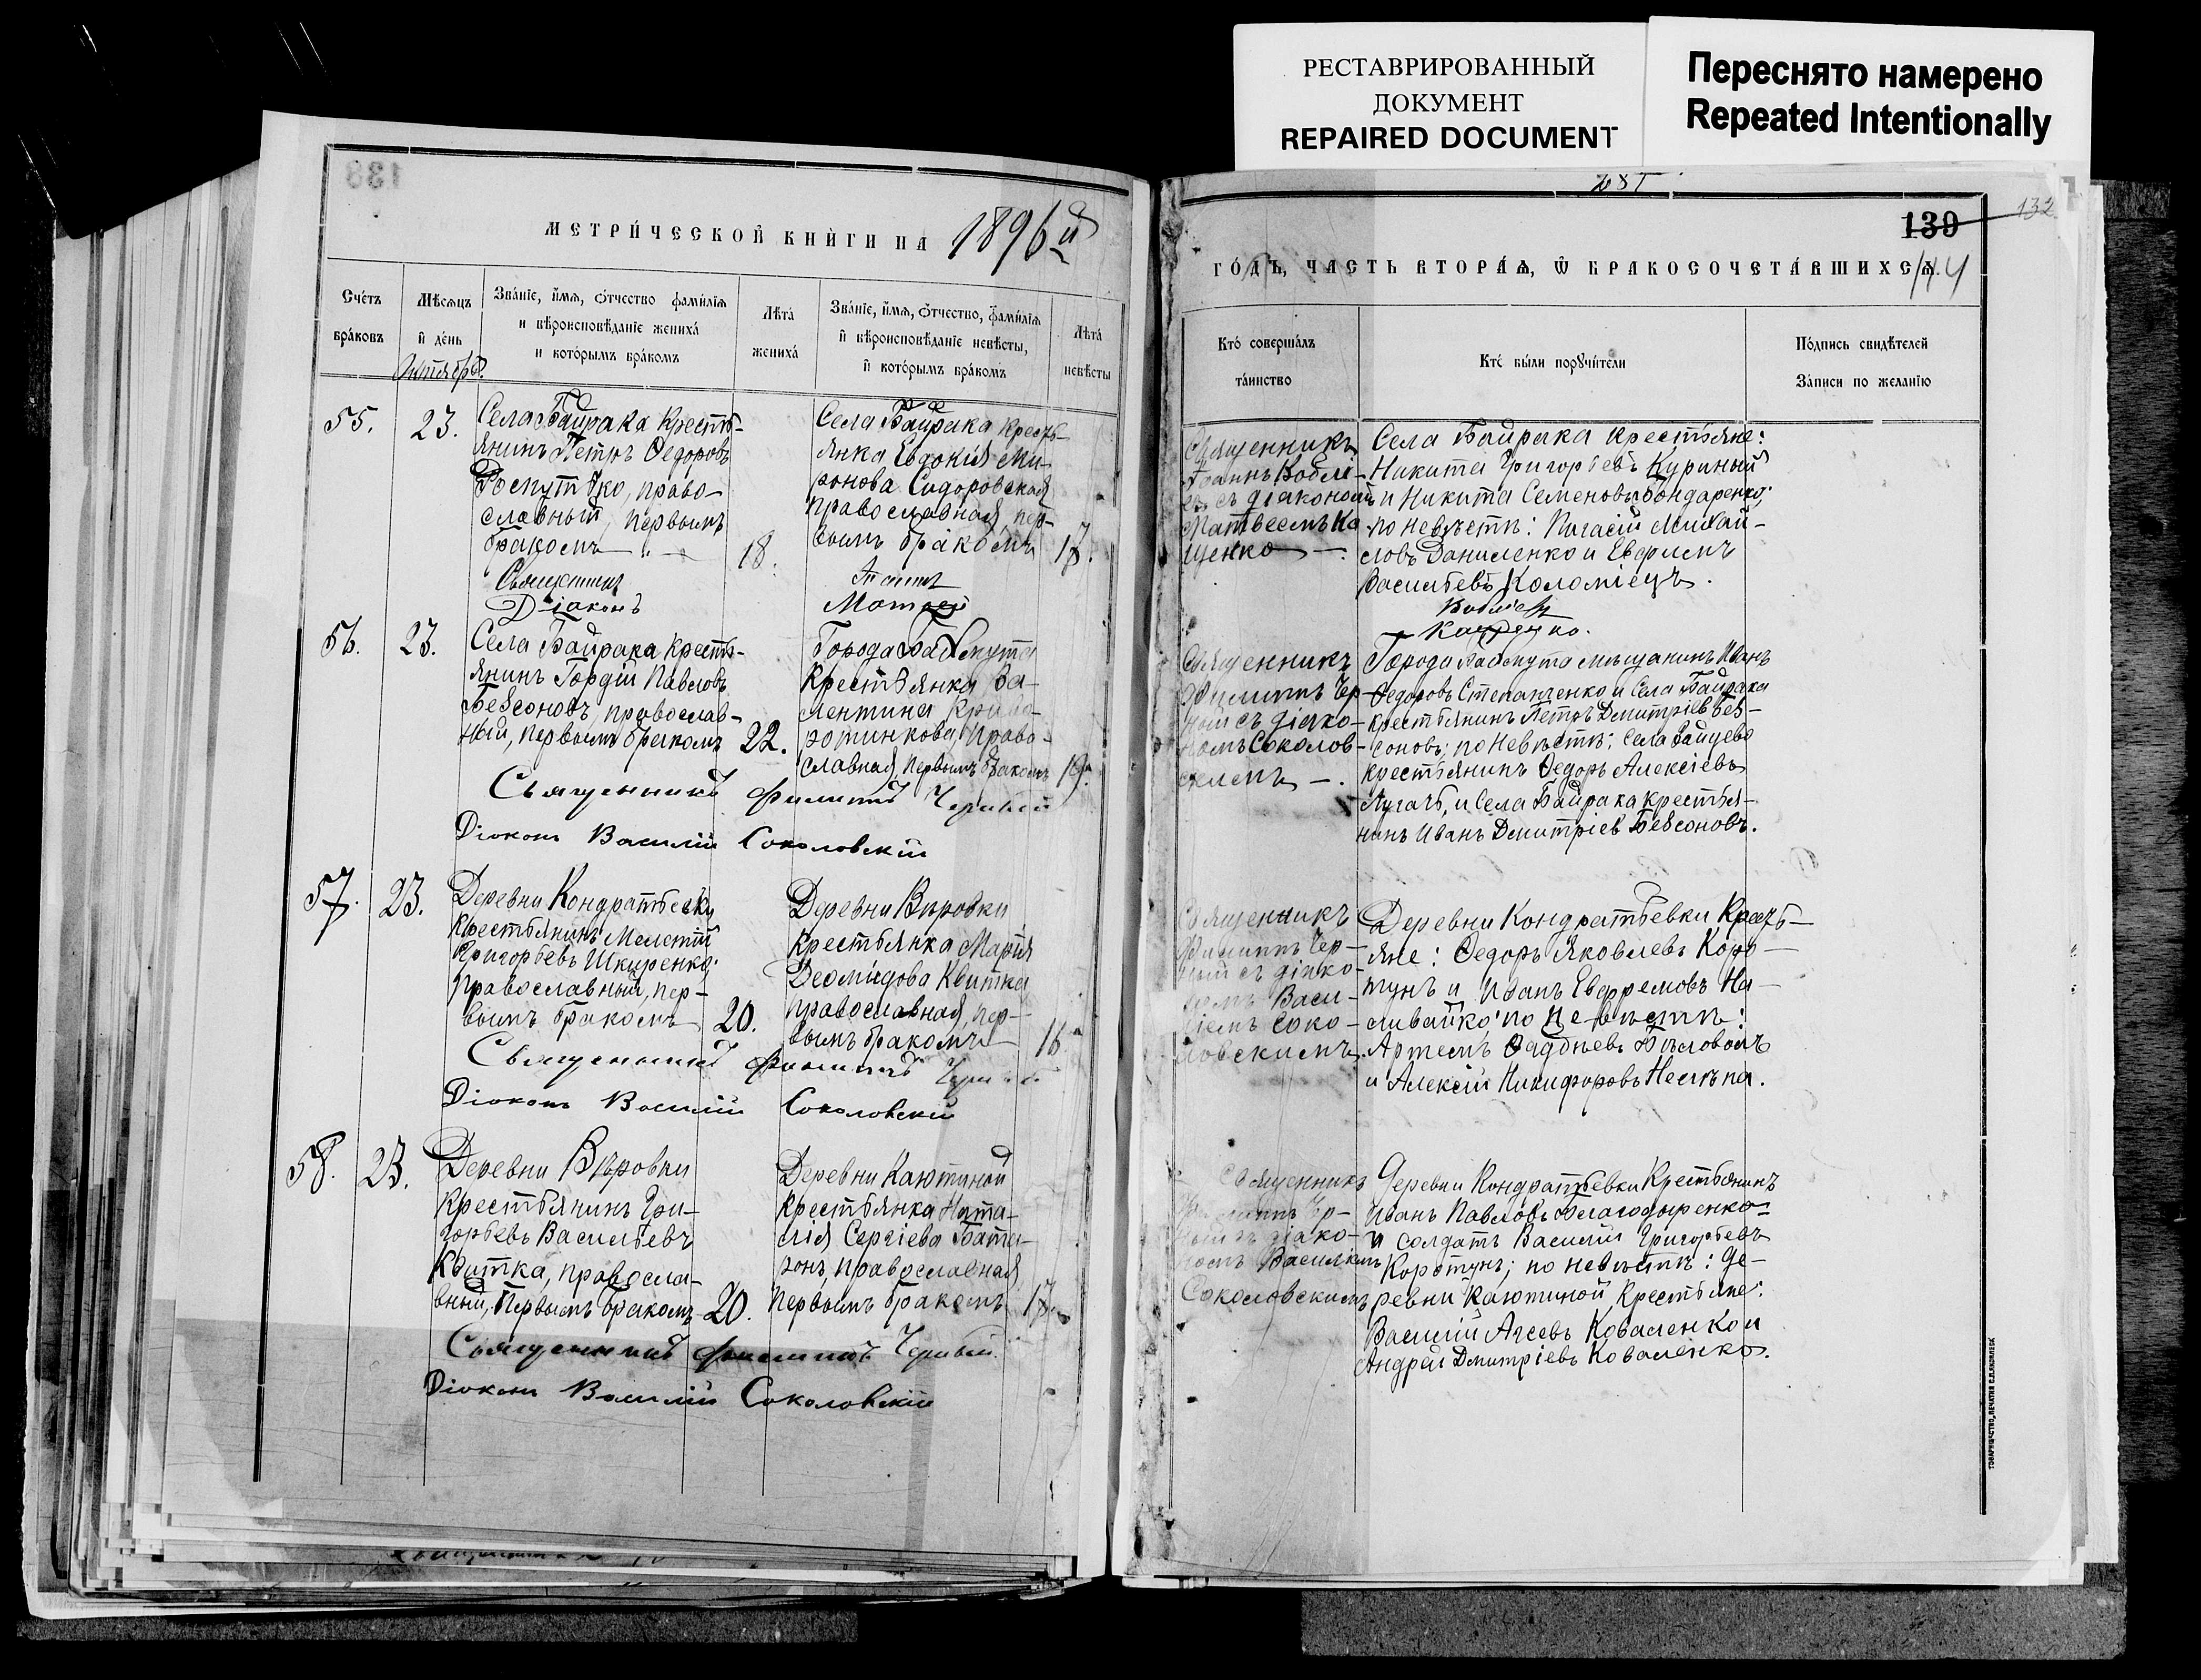 РЕСТАВРИРОВАННЫЙ
ДОКУМЕНТ
REPAIRED DOCUMENT
Переснято намерено
Repeated Intentionally
МЕТРИ́ЧЕСКОЙ КНИ́ГИ НА 1896й
Сче́тъ
бра́ковъ
Мѣ́сяцъ
и҆ де́нь
Октябрь.
Зва́нїе, и҆́мѧ, ѻ҆́тчество фами́лїѧ
и вѣроисповѣ́данїе жениха́
и кото́рымъ бра́комъ
Лѣта̀
жениха́
Зва́нїе, и҆́мѧ, ѻ҆́тчество, фами́лїѧ
и҆ вѣроисповѣ́данїе невѣ́сты,
и҆ кото́рымъ бра́комъ
Лѣта̀
невѣ́сты
55.
23.
Села Байрака кресть-
янинъ Петръ Ѳедоровъ
Роспутько, право-
славный, первымъ
бракомъ
18.
Села Байрака кресть-
янка Евдокія Ми-
ронова Сидоровская
православная, пер-
вымъ бракомъ
17.
Священникъ Іоаннъ
Діаконъ Матвей
56.
23.
Села Байрака кресть-
янинъ Гордій Павловъ
Безсоновъ, православ-
ный, первымъ бракомъ
22.
Города Бахмута
крестьянка Ва-
лентина
православная, первымъ бракомъ
19.
Священникъ Филиппъ Черный
Діаконъ Василій Соколовскій
57.
23.
Деревни Кондратьевки
крестьянинъ Мелетій
Григорьевъ Шкуренко,
православный, пер-
вымъ бракомъ
20.
Деревни Вѣровки
крестьянка Марія
Деомидова Квитка
православная, пер-
вымъ бракомъ
16.
Священникъ Филиппъ Черный
Діаконъ Василій Соколовскій
58.
23.
Деревни Вѣровки
крестьянинъ Гри-
горьевъ Васильевъ
Квитка, правосла-
вный, первымъ бракомъ
20.
Деревни Каютиной
крестьянка Ната-
лія Сергіева
православная
первымъ бракомъ
17.
Священникъ Филиппъ Черный
Діаконъ Василій Соколовскій
139
132
144
ГО́ДЪ, ЧА́СТЬ ВТОРА́Ѧ, Ѡ҆ БРАКОСОЧЕТА́ВШИХСѦ
Кто̀ соверша́лъ
та́инство
Кто̀ бы́ли порꙋчи́тели
По́дпись свидѣ́телей
За́писи по жела́нїю
Священникъ
Іоаннъ
съ діакономъ
Матвеемъ Ка
щенко
Села Байрака крестьяне:
Никита Григорьевъ Куриный
и Никита Семеновъ Бондаренко;
по невѣстѣ: Пигасій Михай-
ловъ Даниленко и Евфимъ
Васильевъ Коломіецъ.
Кащенко.
Священникъ
Филиппъ Чер-
ный съ діако-
номъ Соколов-
скимъ
Города Бахмута мѣщанинъ Иванъ
Ѳедоровъ Степанченко и Села Байрака
крестьянинъ Петръ Дмитріевъ Без-
соновъ; по невѣстѣ: Села Зайцево
крестьянинъ Ѳедоръ Алексіевъ
Лугачъ, и Села Байрака крестья-
нинъ Иванъ Дмитріев Безсоновъ.
Священникъ
Филиппъ Чер-
ный съ діако-
номъ Васи-
ліемъ Соко-
ловскимъ.
Деревни Кондратьевки Кресть-
яне: Ѳедоръ Яковлевъ Коро-
тунъ и Иванъ Евфремовъ На-
ливайко; по невѣстѣ:
Артемъ Ѳаддѣевъ Бѣловолъ
и Алексій Никифоровъ Нелѣпа.
Священникъ
Филиппъ Чер-
ный съ діако-
номъ Василіемъ
Соколовскимъ
Деревни Кондратьевки Крестьянинъ
Иванъ Павловъ Благодыренко
и солдатъ Василій Григорьевъ
Коротунъ; по невѣстѣ: Де-
ревни Каютиной, Крестьяне:
Василій Агеевъ Коваленко и
Андрей Дмитріевъ Коваленко.